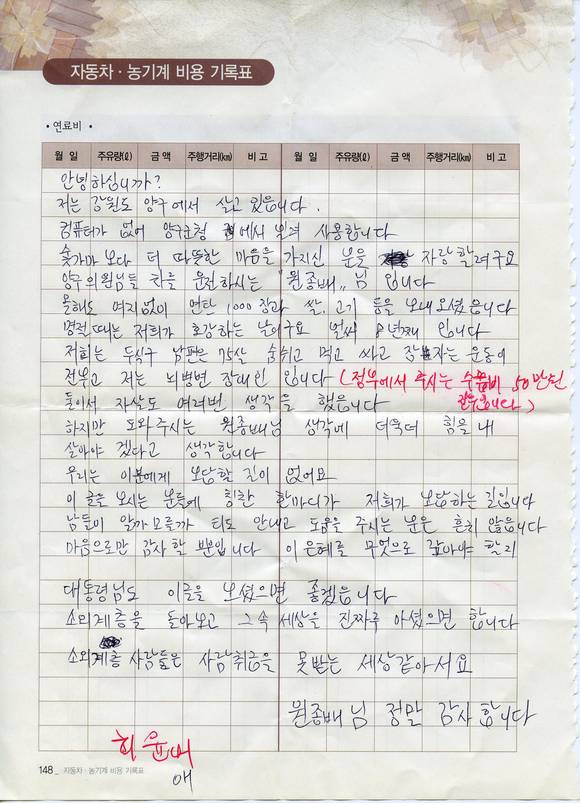 자동차 · 농기계 비용 기록표
• 연료비 •
월 일 주유량(ℓ) 금 액 주행거리(km) 비 고 월 일 주유량(ℓ) 금 액 주행거리(km) 비 고
안녕하십니까?
저는 강원도 양구에서 살고 있읍니다.
컴퓨터가 없어 양구군청 에서 빌려 사용합니다
숯가마 보다 더 따뜻한 마음을 가지신 분을 자랑 할려구요
양구 의원님들 차를 운전하시는 "원종배" 님 입니다
올해도 여지없이 연탄 1,000장과 쌀, 고기 등을 보내오셨읍니다
명절 때는 저희가 호강하는 날이구요 벌써 8년째 입니다
저희는 두식구 남편은 75살 숨쉬고 먹고 싸고 잠자는 운동이
전부고 저는 뇌병변 장애인 입니다 (정부에서 주시는 수급비 50만원
둘이서 자살도 여러번 생각을 했읍니다 전부입니다)
하지만 도와주시는 원종배님 생각에 더욱더 힘을 내
살아야 겠다고 생각합니다
우리는 이분에게 보답할 길이 없어요
이 글을 보시는 분들에 칭찬 한마디가 저희가 보답하는 길입니다
남들이 알까 모를까 티도 안내고 도움을 주시는 분은 흔치 않읍니다
마음으로만 감사 할 뿐입니다 이 은혜를 무엇으로 갚아야 할지
대통령님도 이글을 보셨으면 좋겠읍니다
소외계층을 돌아보고 그속 세상을 진짜루 아셨으면 합니다
소외계층 사람들은 사람취급을 못받는 세상같아서요
원종배님 정말 감사합니다
최윤미
애
148_ 자동차 · 농기계 비용 기록표